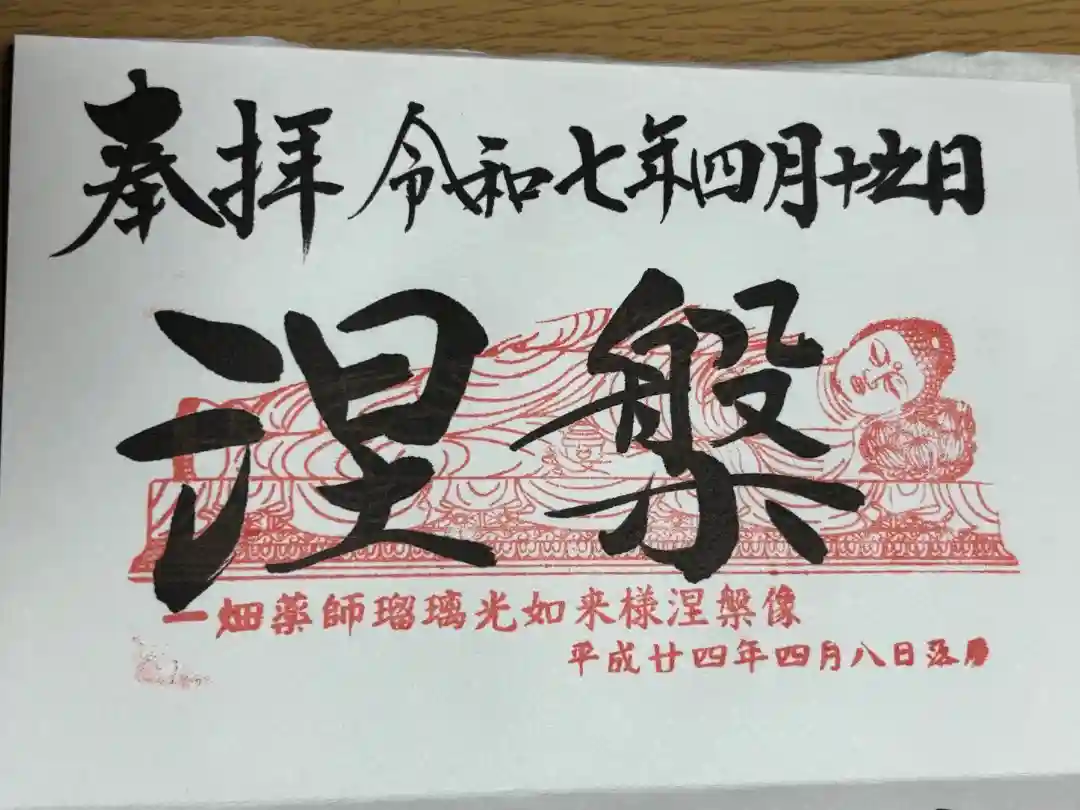 奉拝 令和七年四月十日
涅槃
一畑薬師瑠璃光如来様涅槃像
平成廿四年四月八日落